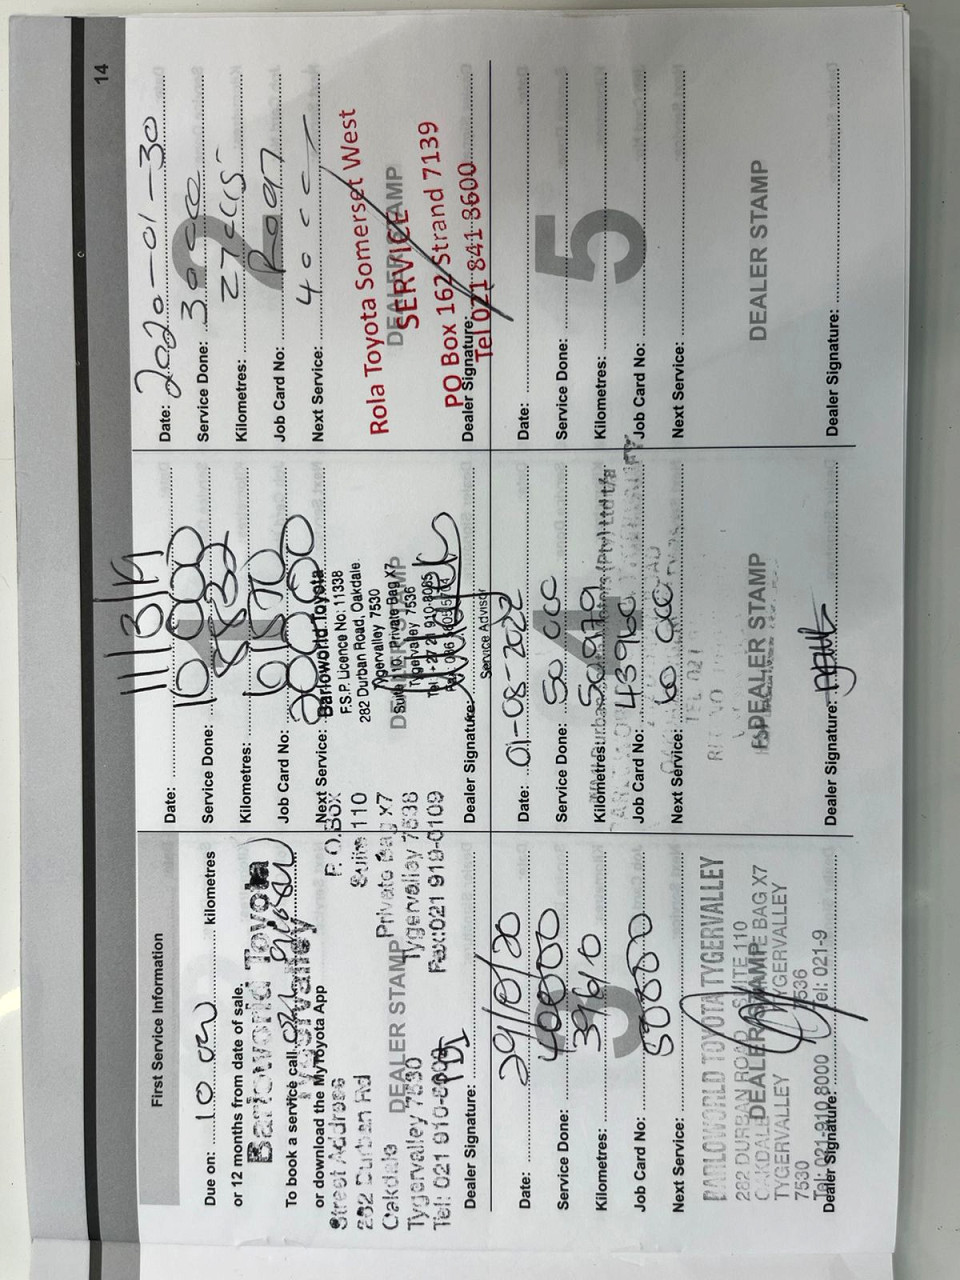 14
First Service Information
Due on: 10 000 kilometres
or 12 months from date of sale.
Barloworld Toyota
To book a service call
Tygervalley
or download the MyToyota App
Street Address P.O.Box
282 Durban Rd Suite 110
Oakdale Private Bag X7
DEALER STAMP
Tygervalley 7530 Tygervalley 7536
Tel: 021 910- Fax:021 919-0109
PDI
Dealer Signature:
1
Date: 11/3/19
Service Done: 10 000
Kilometres: 8822
Job Card No: 61570
Next Service: 20000
Barloworld Toyota
F.S.P. Licence No: 11338
282 Durban Road, Oakdale
Tygervalley 7530
Suite 110, Private Bag X7
DEALER STAMP
Tygervalley 7536
Tel: +27 21 910-8085
Dealer Signature:
Service Advisor
2
Date: 2020-01-30
Service Done: 30 000
Kilometres:
Job Card No:
Next Service: 40 000
Rola Toyota Somerset West
DEALER STAMP
SERVICE
PO Box 162 Strand 7139
Dealer Signature:
Tel 021 841 3600
3
Date: 29/10/20
Service Done: 40000
Kilometres: 39610
Job Card No:
Next Service: 50000
BARLOWORLD TOYOTA TYGERVALLEY
282 DURBAN ROAD SUITE 110
OAKDALE PRIVATE BAG X7
DEALER STAMP
TYGERVALLEY TYGERVALLEY
7530 7536
Tel: 021-910 8000 Tel: 021-9
Dealer Signature:
4
Date: 01-08-2022
Service Done: 50 000
Kilometres: 50979
Job Card No: 43960
Next Service: 60 000
TEL 021
DEALER STAMP
Dealer Signature:
5
Date:
Service Done:
Kilometres:
Job Card No:
Next Service:
DEALER STAMP
Dealer Signature: